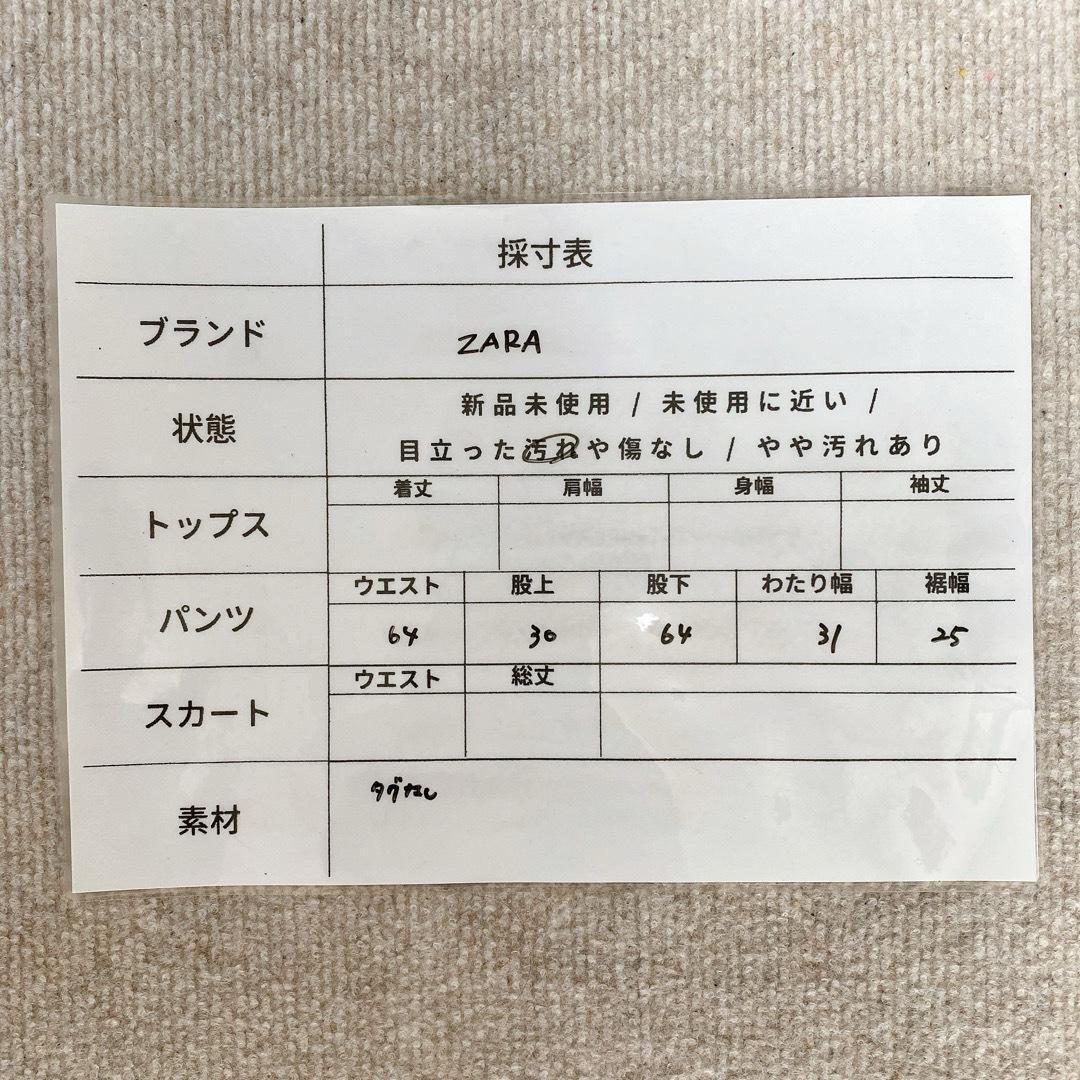 採寸表
ブランド ZARA
状態 新品未使用 / 未使用に近い /
目立った汚れや傷なし / やや汚れあり
トップス 着丈 肩幅 身幅 袖丈
パンツ ウエスト 股上 股下 わたり幅 裾幅
64 30 64 31 25
スカート ウエスト 総丈
素材 タグなし